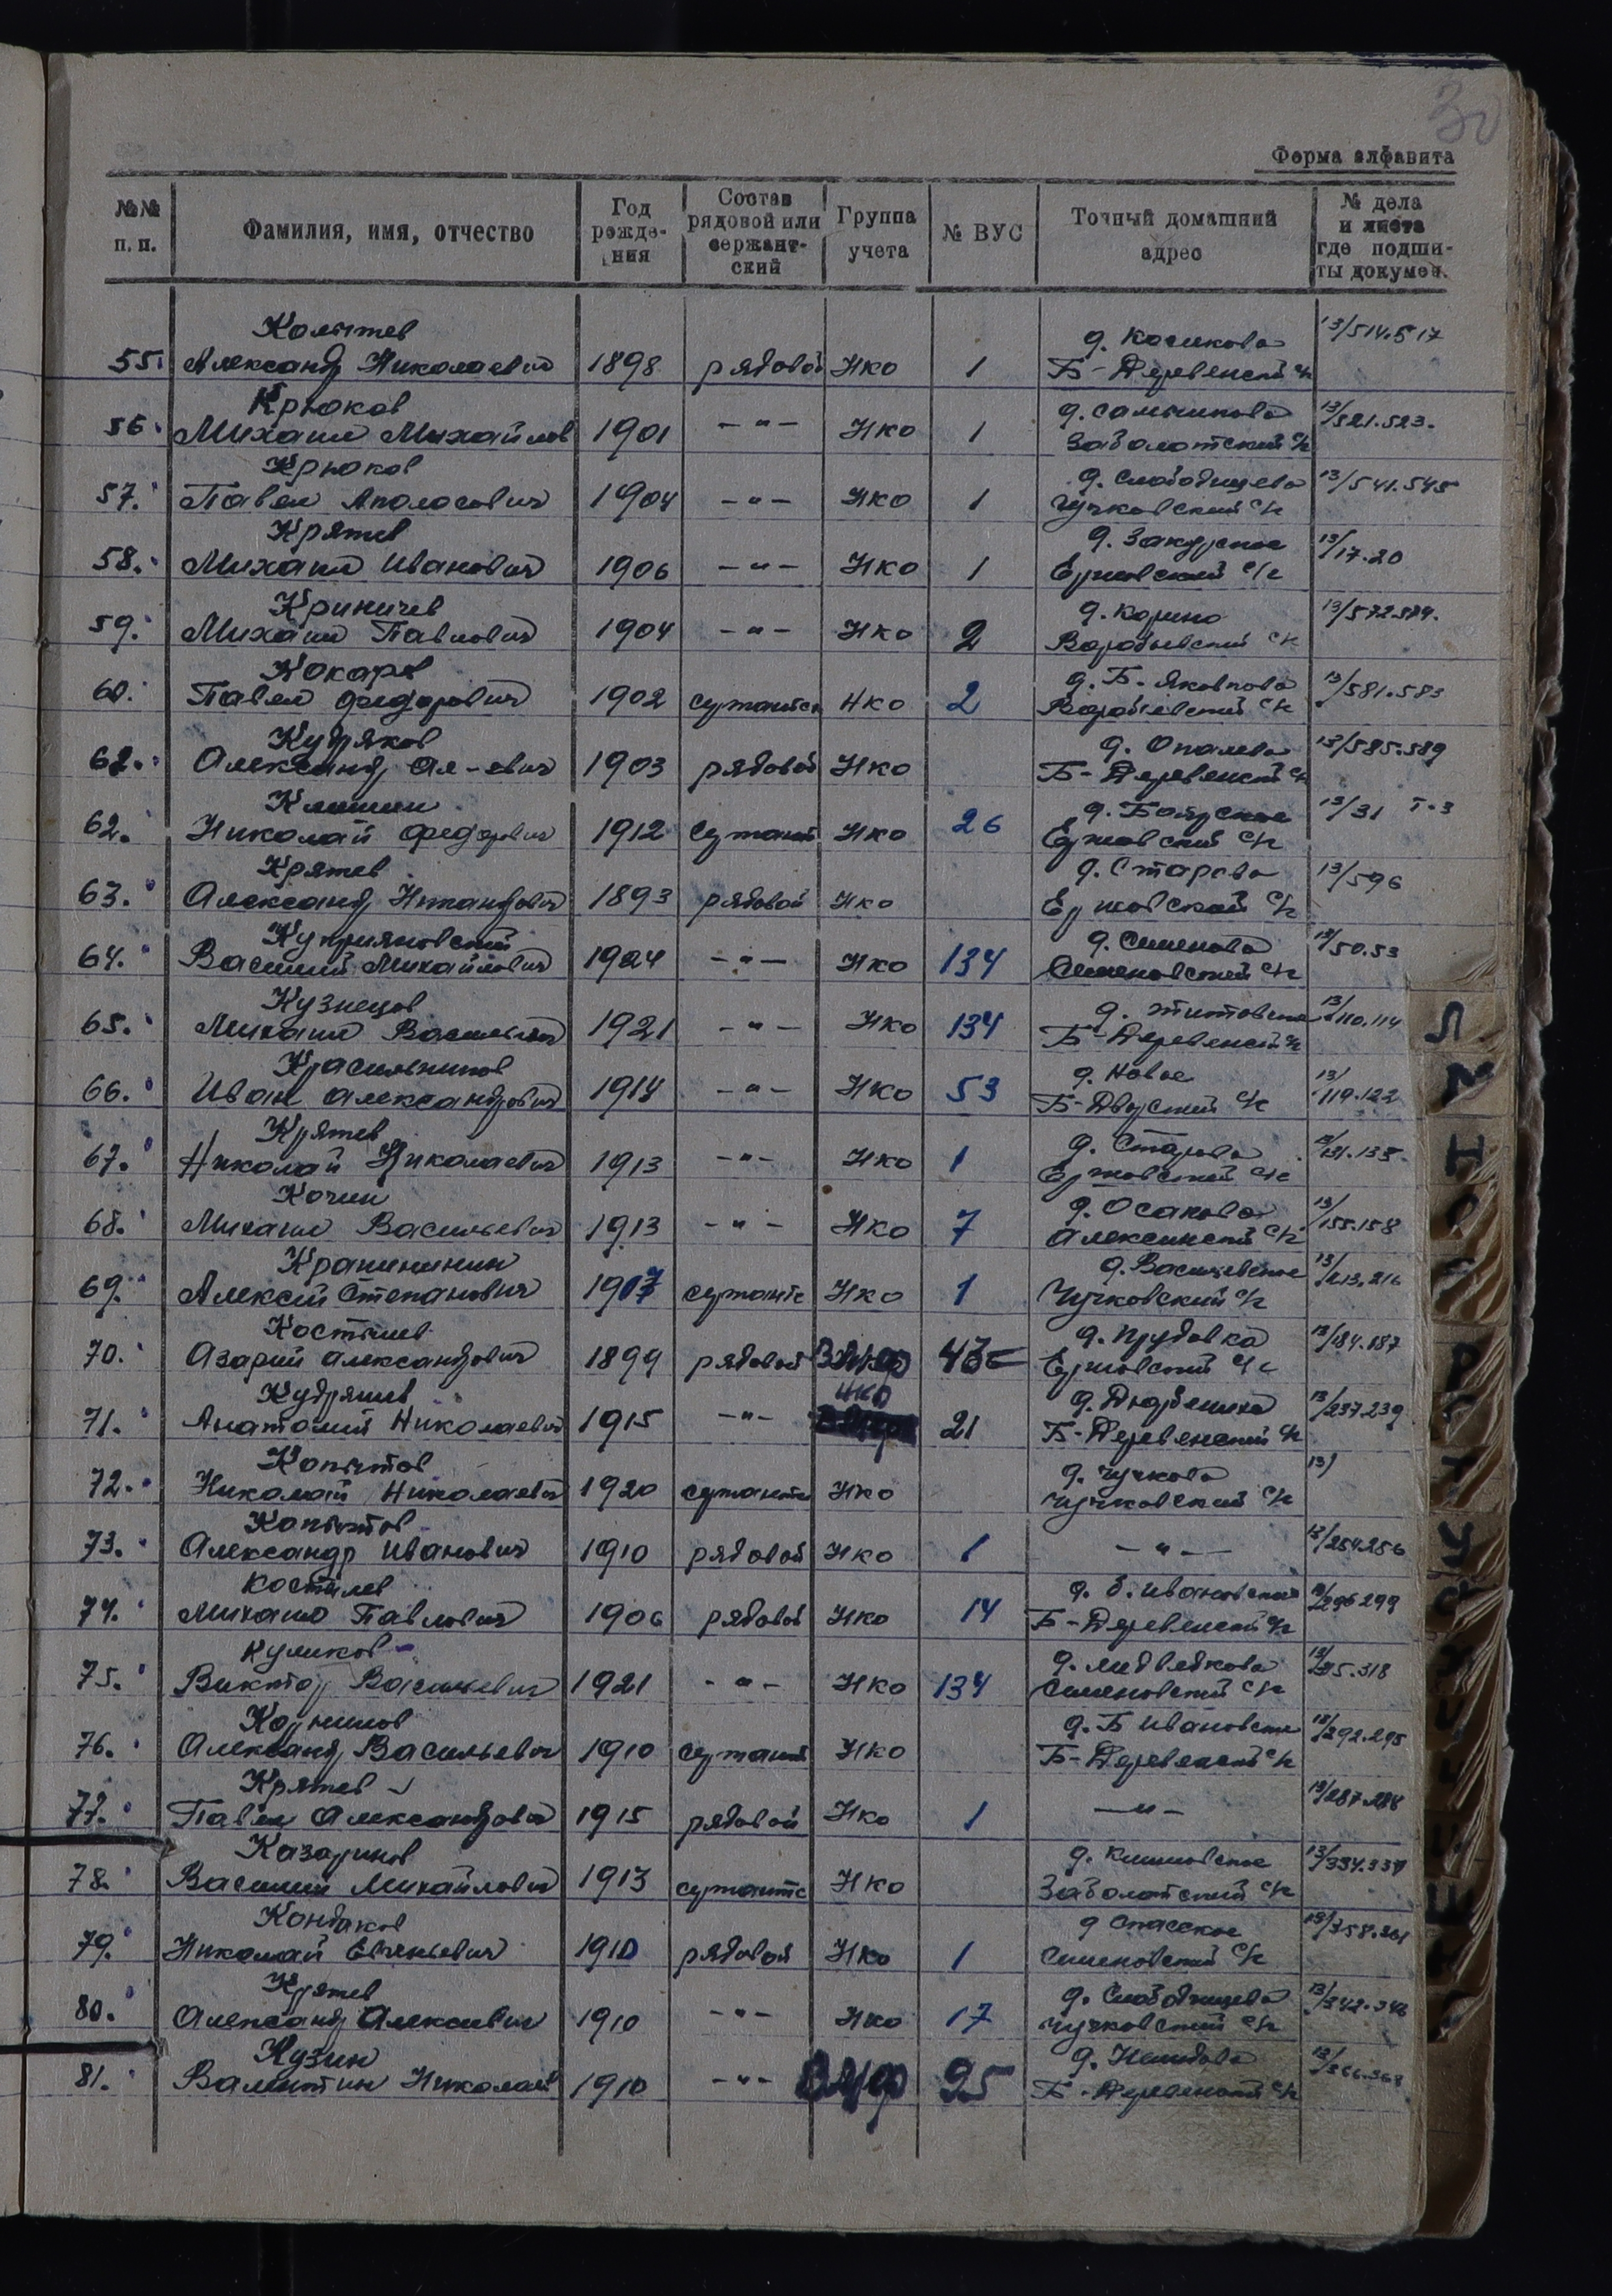 30
Форма алфавита
№№ п. п. | Фамилия, имя, отчество | Год рожде- ния | Состав рядовой или сержант- ский | Группа учета | № ВУС | Точный домашний адрес | № дела и листа где подши- ты докумен.
Копытев д. Косиково 13/514.517
55. Александр Николаевич 1898 рядовой НКО 1 Б-Деревенский с/с
Крюков 13/521.523.
56. Михаил Михайлов 1901 -"- НКО 1 Заболотский с/с
Крюков д. Слободищево 13/541.545
57. Павел Аполосович 1904 -"- НКО 1 Чучковский с/с
Крятев д. Закурское 13/17.20
58. Михаил Иванович 1906 -"- НКО 1 Ермовский с/с
Криничев д. Корино 13/572.574.
59. Михаил Павлович 1904 -"- НКО 2 Воробьевский с/с
Кокарев д. Б. Яковково 13/581.583
60. Павел Федорович 1902 сержантск НКО 2 Воробьевский с/с
Кудряков д. Опалево 13/585.589
62. Александр Ал-евич 1903 рядовой НКО Б-Деревенский с/с
д. Боярское 13/31 т-3
62. Николай Федорович 1912 Сержант НКО 26 Ермовский с/с
Крятев д. Старово 13/596
63. Александр Никандрович 1893 рядовой НКО Ермовский с/с
Куприяновский д. Семеново 13/50.53
64. Василий Михайлович 1924 -"- НКО 134 Семеновский с/с
Кузнецов д. Титовское 13/110.114
65. Михаил Васильевич 1921 -"- НКО 134 Б-Деревенский с/с
Красильников д. Новое 13/119.122
66. Иван Александрович 1914 -"- НКО 53 Б-Дворский с/с
Крятев д. Старово 13/131.135
67. Николай Николаевич 1913 -"- НКО 1 Ермовский с/с
Кочин д. Осаково 13/155.158
68. Михаил Васильевич 1913 -"- НКО 7 Алексинский с/с
Крашенинин д. Васильевское 13/213.216
69. Алексей Степанович 1907 сержантс НКО 1 Чучковский с/с
Костылев д. Прудовка 13/184.187
70. Азарий Александрович 1899 рядовой ВМФ 43с Ермовский с/с
Кудряшев НКО 13/237.239
71. Анатолий Николаевич 1915 -"- 21 Б-Деревенский с/с
Копытов д. Чучково 13/
72. Николай Николаевич 1920 сержантск НКО Чучковский с/с
Копытов 13/254.256
73. Александр Иванович 1910 рядовой НКО 1 -"-
Костылев д. Б. Ивановское 13/296.299
74. Михаил Павлович 1906 рядовой НКО 14 Б-Деревенский с/с
Куликов д. Медведково
75. Виктор Васильевич 1921 -"- НКО 134 Семеновский с/с
Корнилов д. Б Ивановское 13/292.295
76. Александр Васильевич 1910 сержант НКО Б-Деревенский с/с
Крятев 13/287.288
77. Павел Александрович 1915 рядовой НКО 1 -"-
Казаринов д. Климовское 13/334.337
78. Василий Михайлович 1913 сержантс НКО Заболотский с/с
Кондаков д Спасское 13/358.361
79. Николай Евгеньевич 1910 рядовой НКО 1 Семеновский с/с
Крятев д. Слободищево 13/342.346
80. Александр Алексеевич 1910 -"- НКО 17 Чучковский с/с
Кузин 13/366.368
81. Валентин Николаев 1910 -"- ВМФ 95 Б-Деревенский с/с